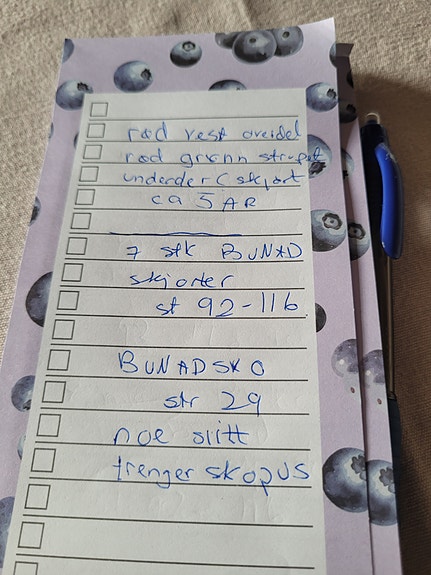 rød vest overdel
rød grønn stripet
underdel (skjørt
ca 5 AR
7 stk BUNAD
skjorter
st 92-116
BUNADSKO
str 29
noe slitt
trenger skopuss